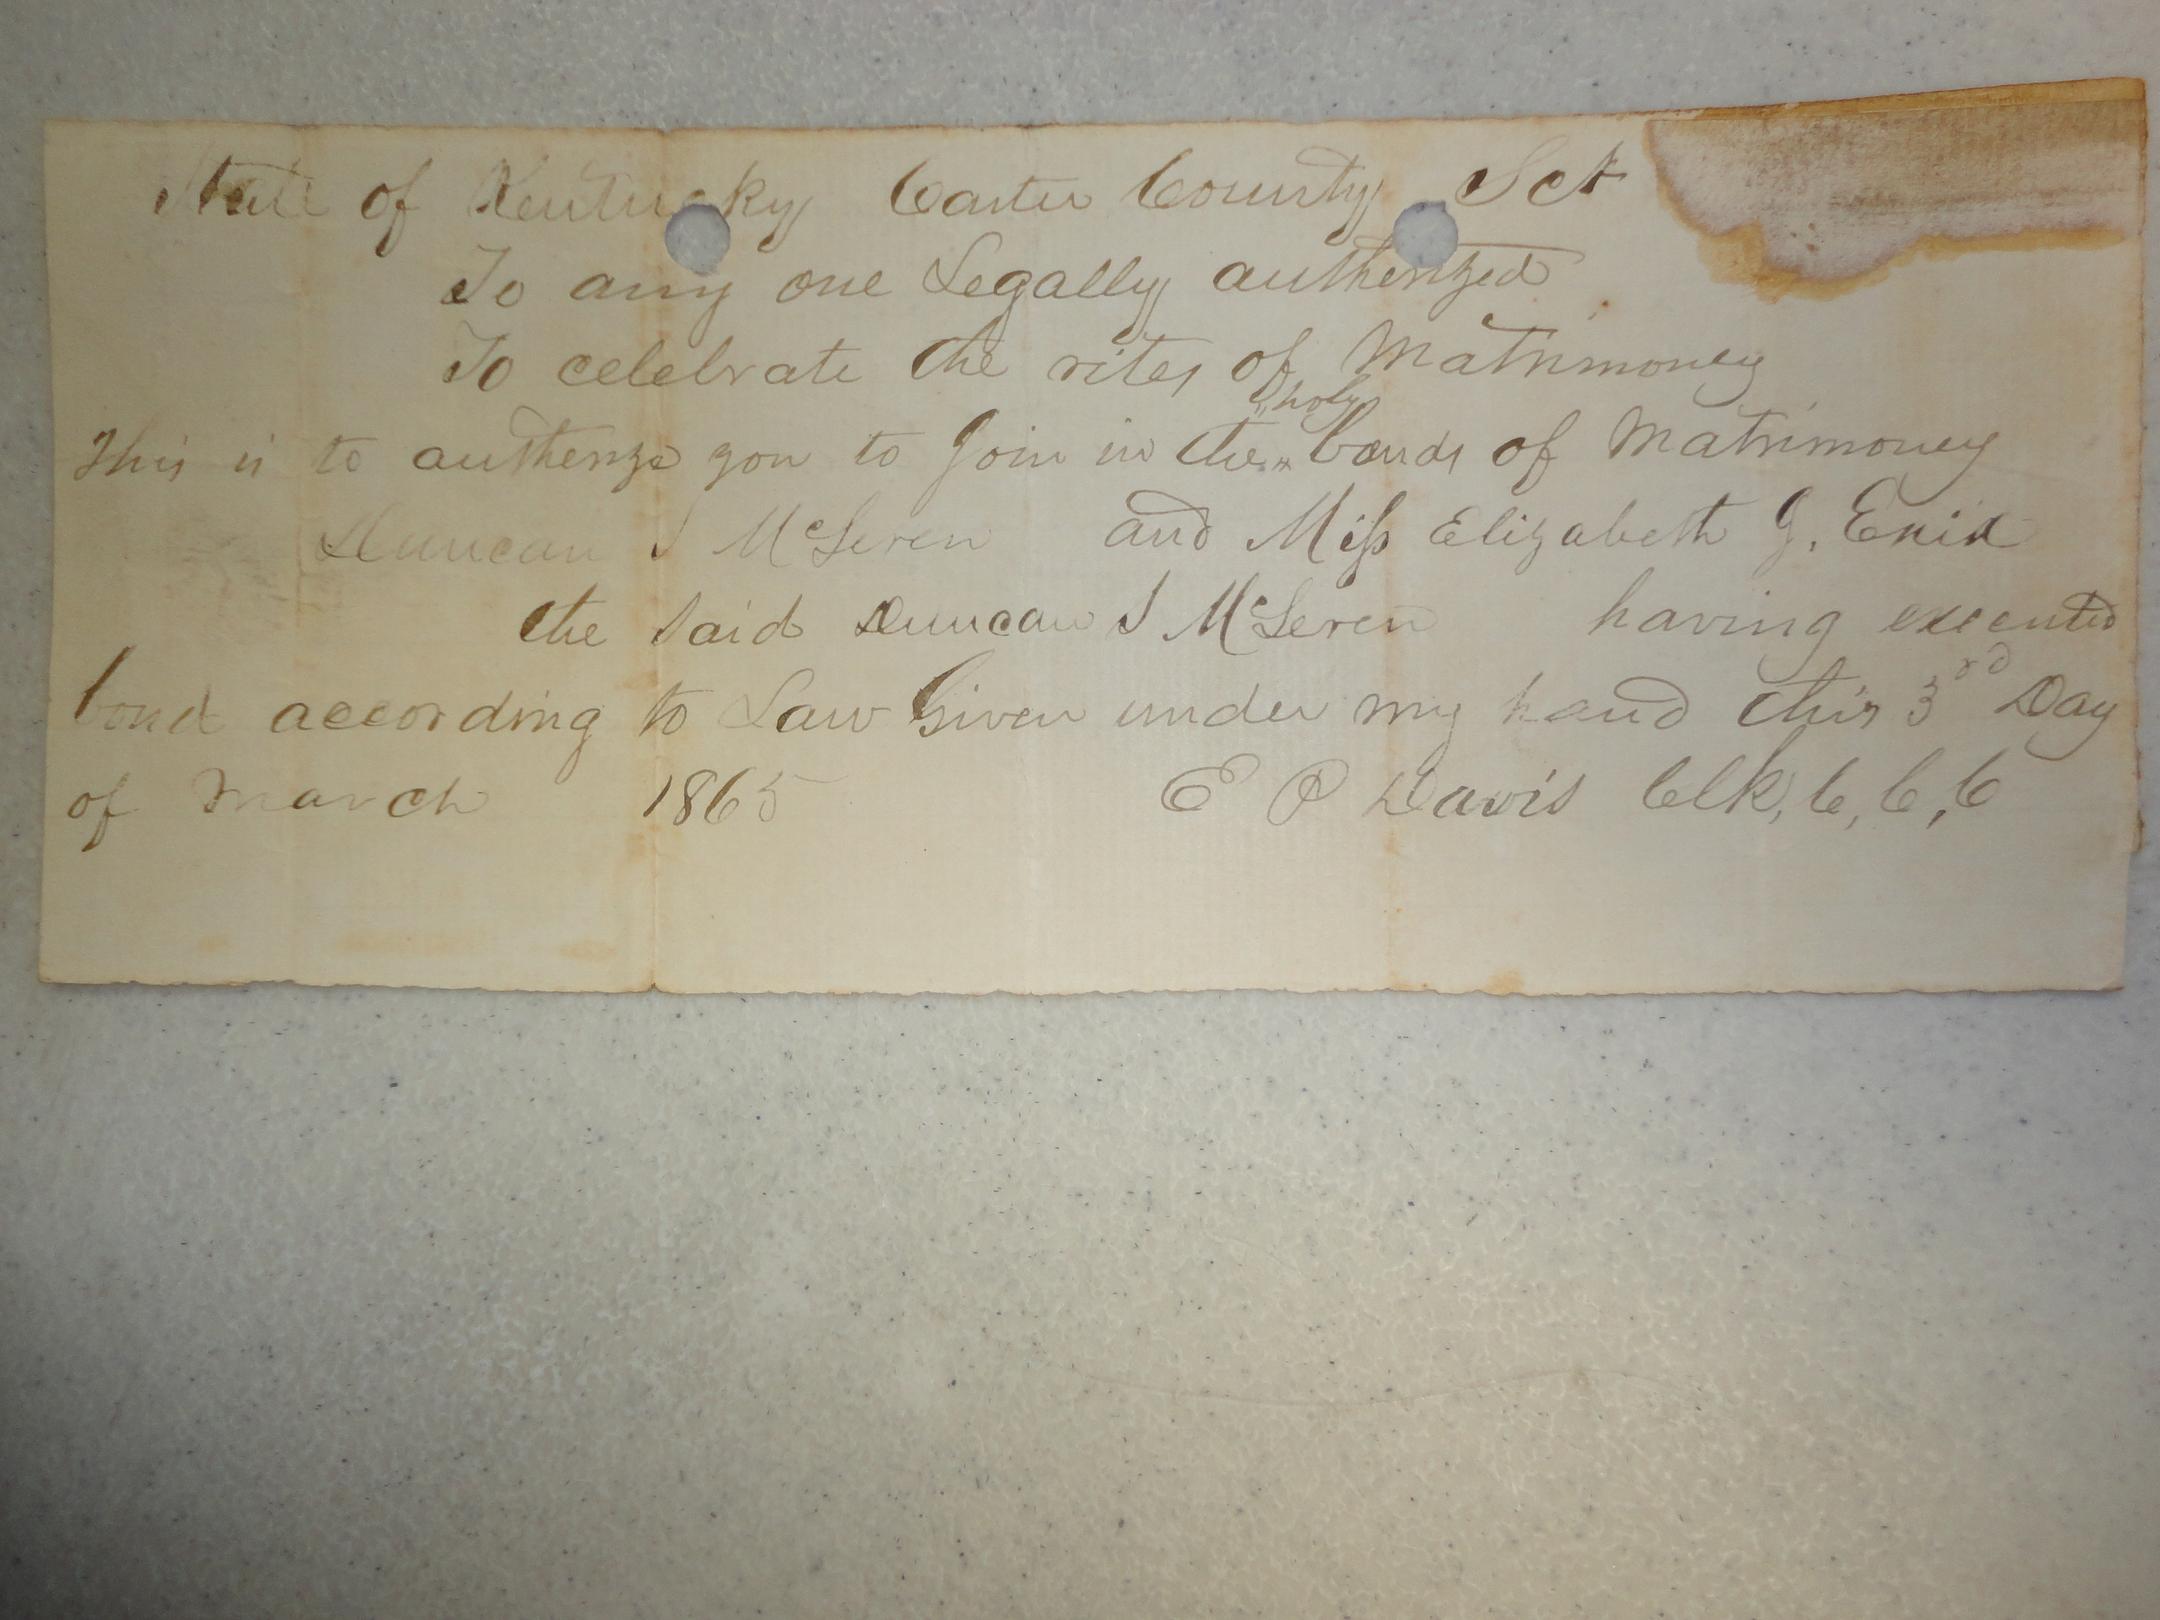 State of Kentucky Carter County Sct
To any one Legally autherized
To celebrate the rites of Matrimoney
holy
This is to autherize you to Join in the bonds of Matrimoney
Duncan S McSeren and Miss Elizabeth J. Enix
the said Duncan S McSeren having executed
bond according to Law Given under my hand this 3rd Day
of March 1865 E P Davis Clk, C, C, C